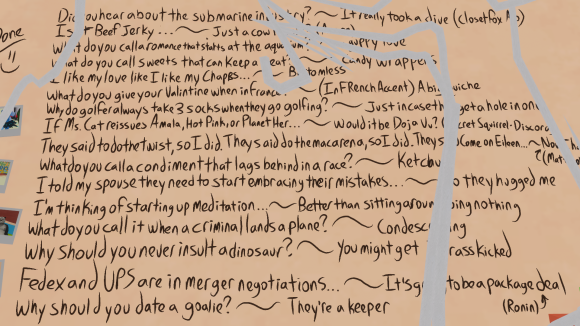 Did you hear about the submarine industry? ~ It really took a dive (closetfox
Is Beef Jerky... ~ Just a cow
Done
What do you call a romance that starts at the aquarium? Guppy love
What do you call sweets that can keep a beat? Candy wrappers
I like my love like I like my Chaps... ~ Bottomless
What do you give your Valintine when in France ~ (In French Accent) A big quiche
Why do golfer always take 3 socks when they go golfing? ~ Just incase they get a hole in one
If Ms. Cat reissues Amala, Hot Pink, or Planet Her... ~ Would it be Doja Vu? (Secret Squirrel-Discord
They said to do the twist, so I did. They said do the macarena, so I did. They said Come on Eileen... ~
What do you call a condiment that lags behind in a race? ~ Ketchup
I told my spouse they need to start embracing their mistakes... ~ So they hugged me
I'm thinking of starting up meditation... ~ Better than sitting around doing nothing
What do you call it when a criminal lands a plane? ~ Condescending
Why should you never insult a dinosaur? ~ You might get Jurasskicked
Fedex and UPS are in merger negotiations... ~ It's going to be a package deal
Why should you date a goalie? ~ They're a keeper (Ronin)